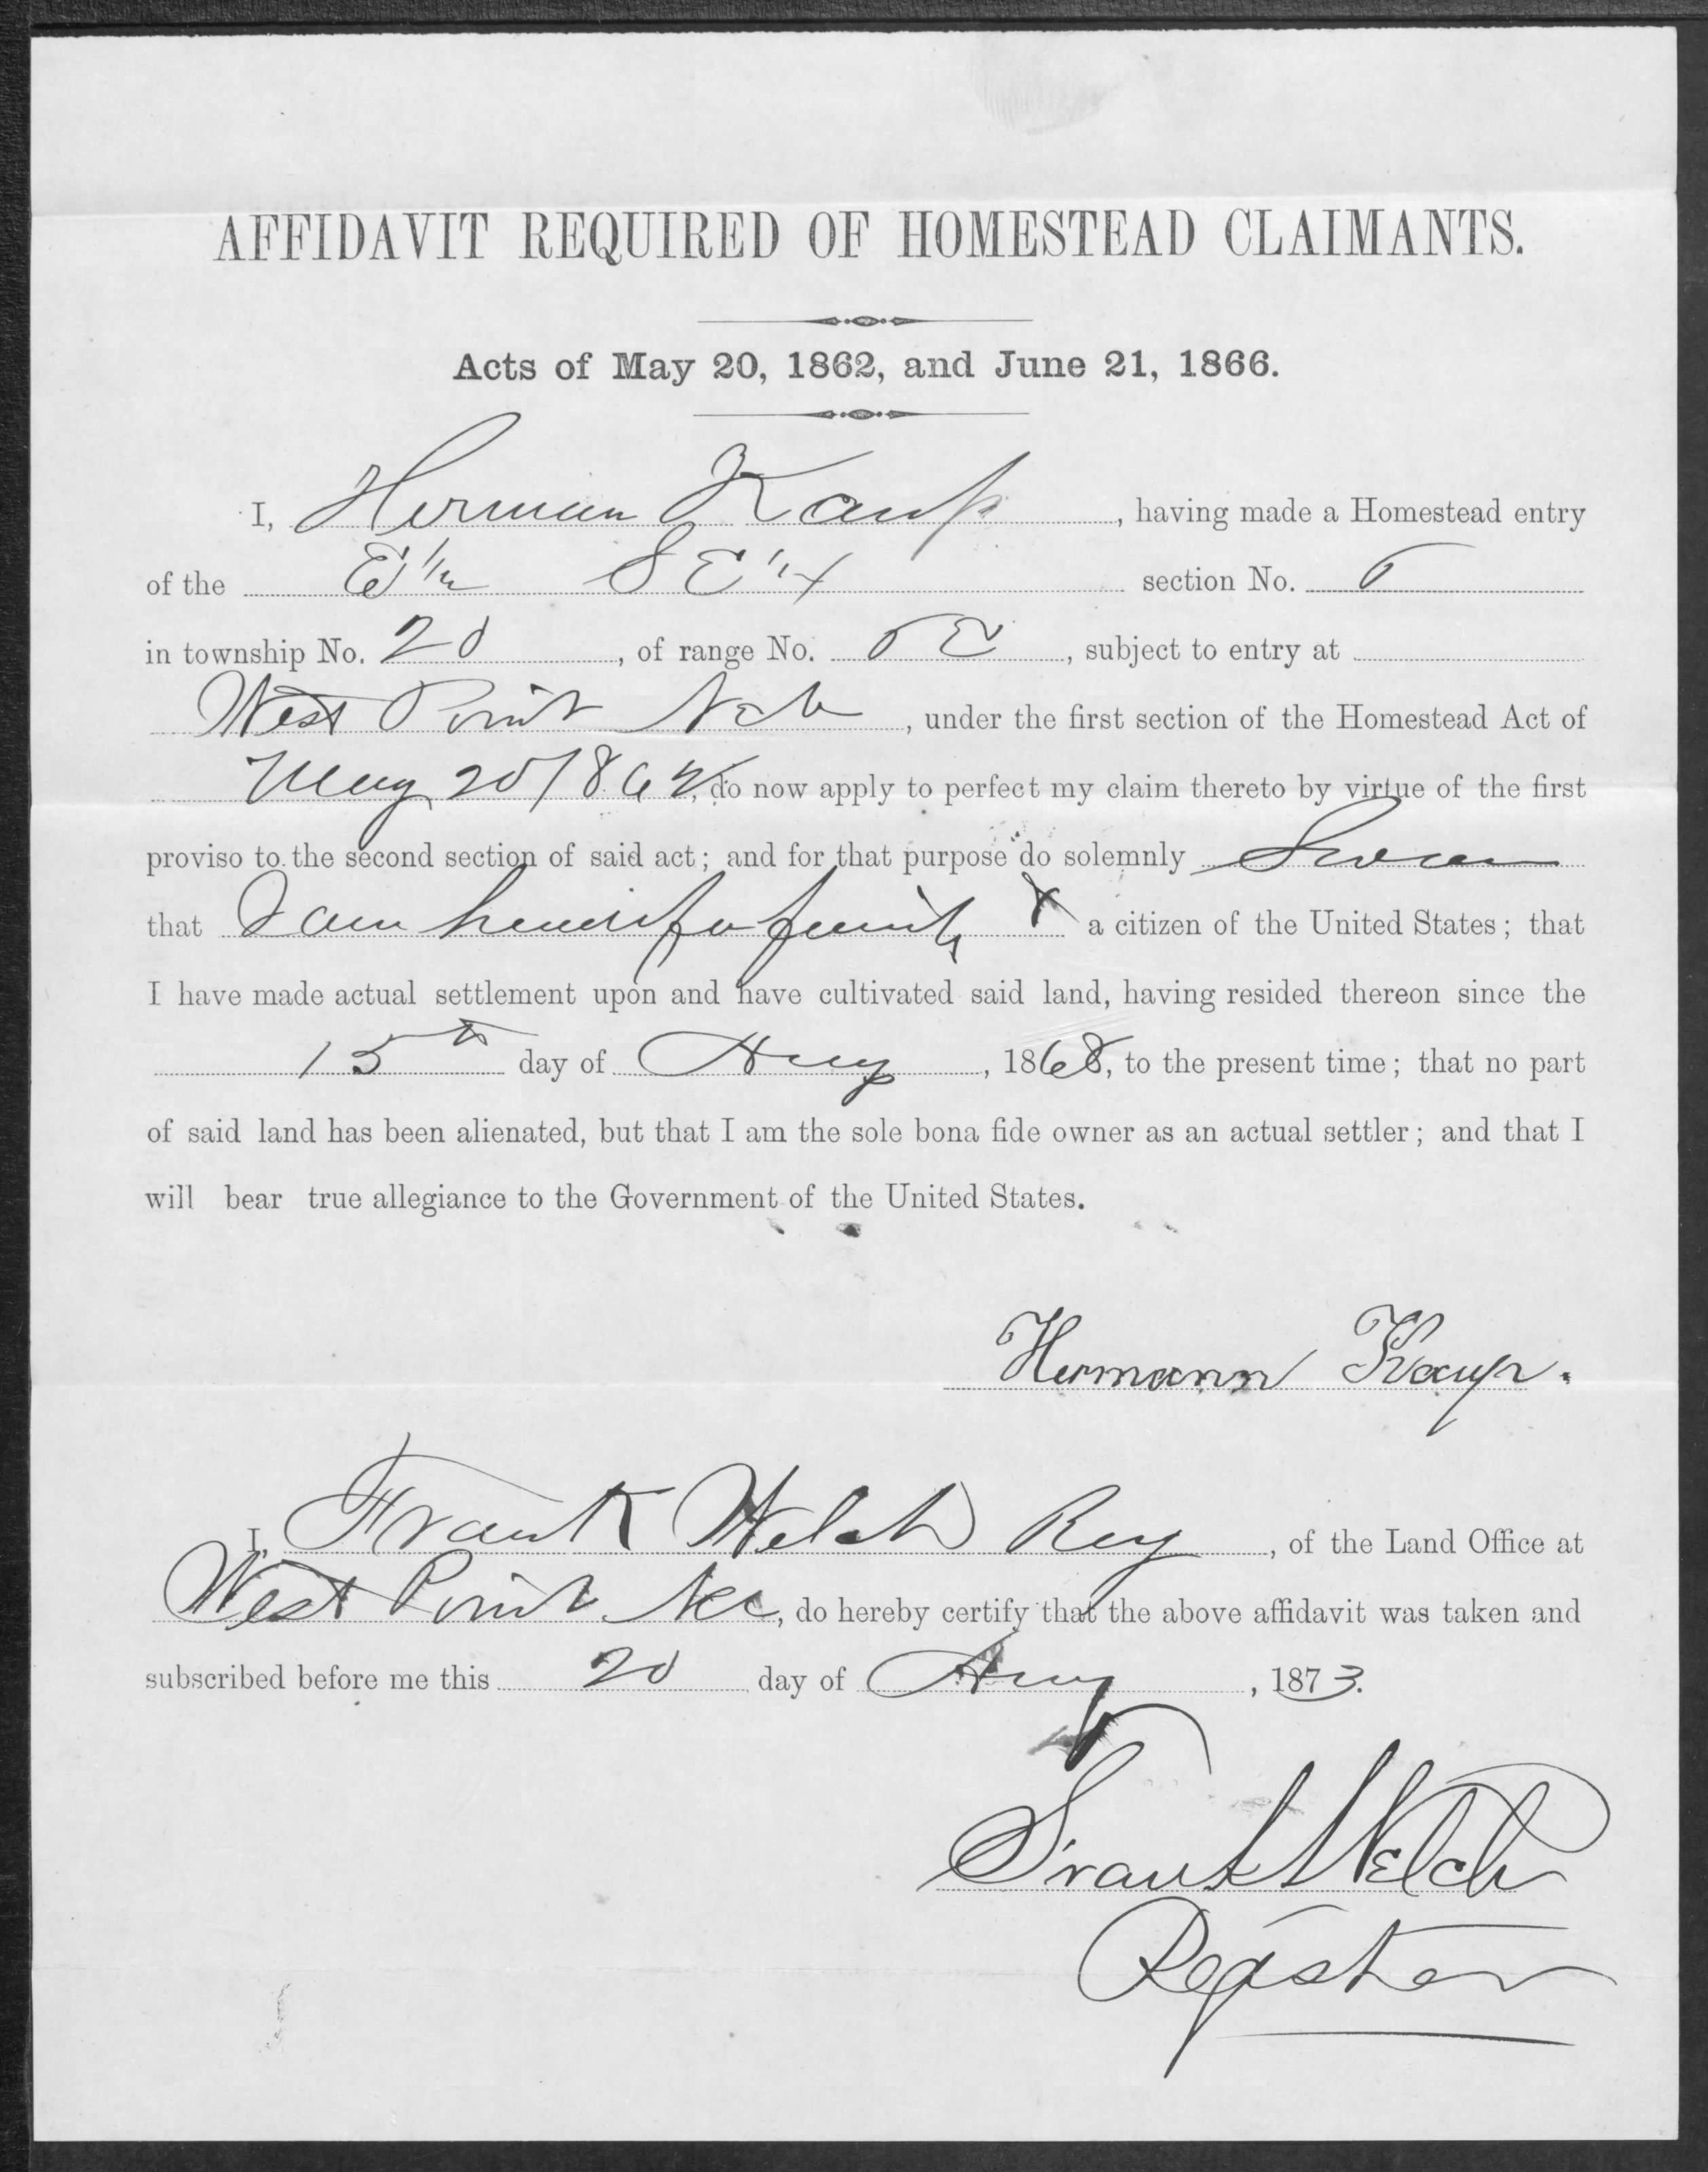 AFFIDAVIT REQUIRED OF HOMESTEAD CLAIMANTS.
Acts of May 20, 1862, and June 21, 1866.
I, Herman Kaup, having made a Homestead entry
of the E 1/2 SE 1/4 section No.
in township No. 20, of range No. E, subject to entry at
West Point Neb, under the first section of the Homestead Act of
May 20 1862, do now apply to perfect my claim thereto by virtue of the first
proviso to the second section of said act; and for that purpose do solemnly Swear
that I am head of a family & a citizen of the United States; that
I have made actual settlement upon and have cultivated said land, having resided thereon since the
15th day of Aug, 1868, to the present time; that no part
of said land has been alienated, but that I am the sole bona fide owner as an actual settler; and that I
will bear true allegiance to the Government of the United States.
Hermann Kaup.
I, Frank Welch Reg, of the Land Office at
West Point Ne, do hereby certify that the above affidavit was taken and
subscribed before me this 20 day of Aug, 1873.
Frank Welch
Register